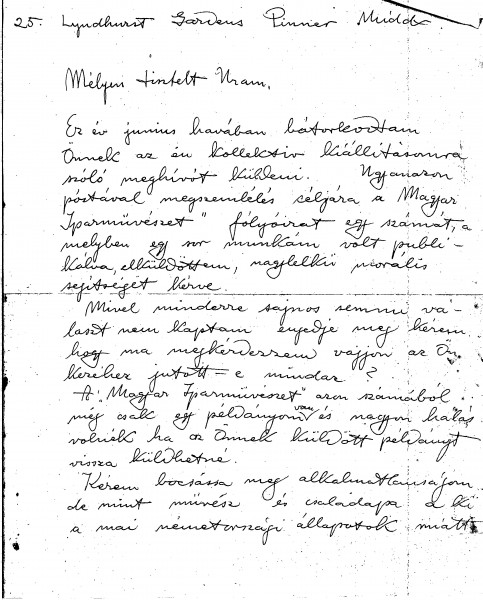 25. Lyndhurst Gardens Pinner Middx
Mélyen tisztelt Uram,
Ez év junius havában bátorkodtam
Önnek az én kollektiv kiállításomra
szóló meghívót küldeni. Ugyanazon
póstával megszemlélés céljára a "Magyar
Iparmüvészet" folyóirat egy számát, a
melyben egy sor munkám volt publi-
kálva, elküldöttem, nagylelkü morális
segitségét kérve.
Mivel minderre sajnos semmi vá-
laszt nem kaptam engedje meg kérem
hogy ma megkérdezzem vajjon az Ön
kezéhez jutott-e mindaz?
A "Magyar Iparmüvészet" azon számából
még csak egy példányom van és nagyon hálás
volnék ha az Önnek küldött példányt
vissza küldhetné.
Kérem bocsássa meg alkalmatlanságom
de mint müvész és családapa a ki
a mai németországi állapotok miatt